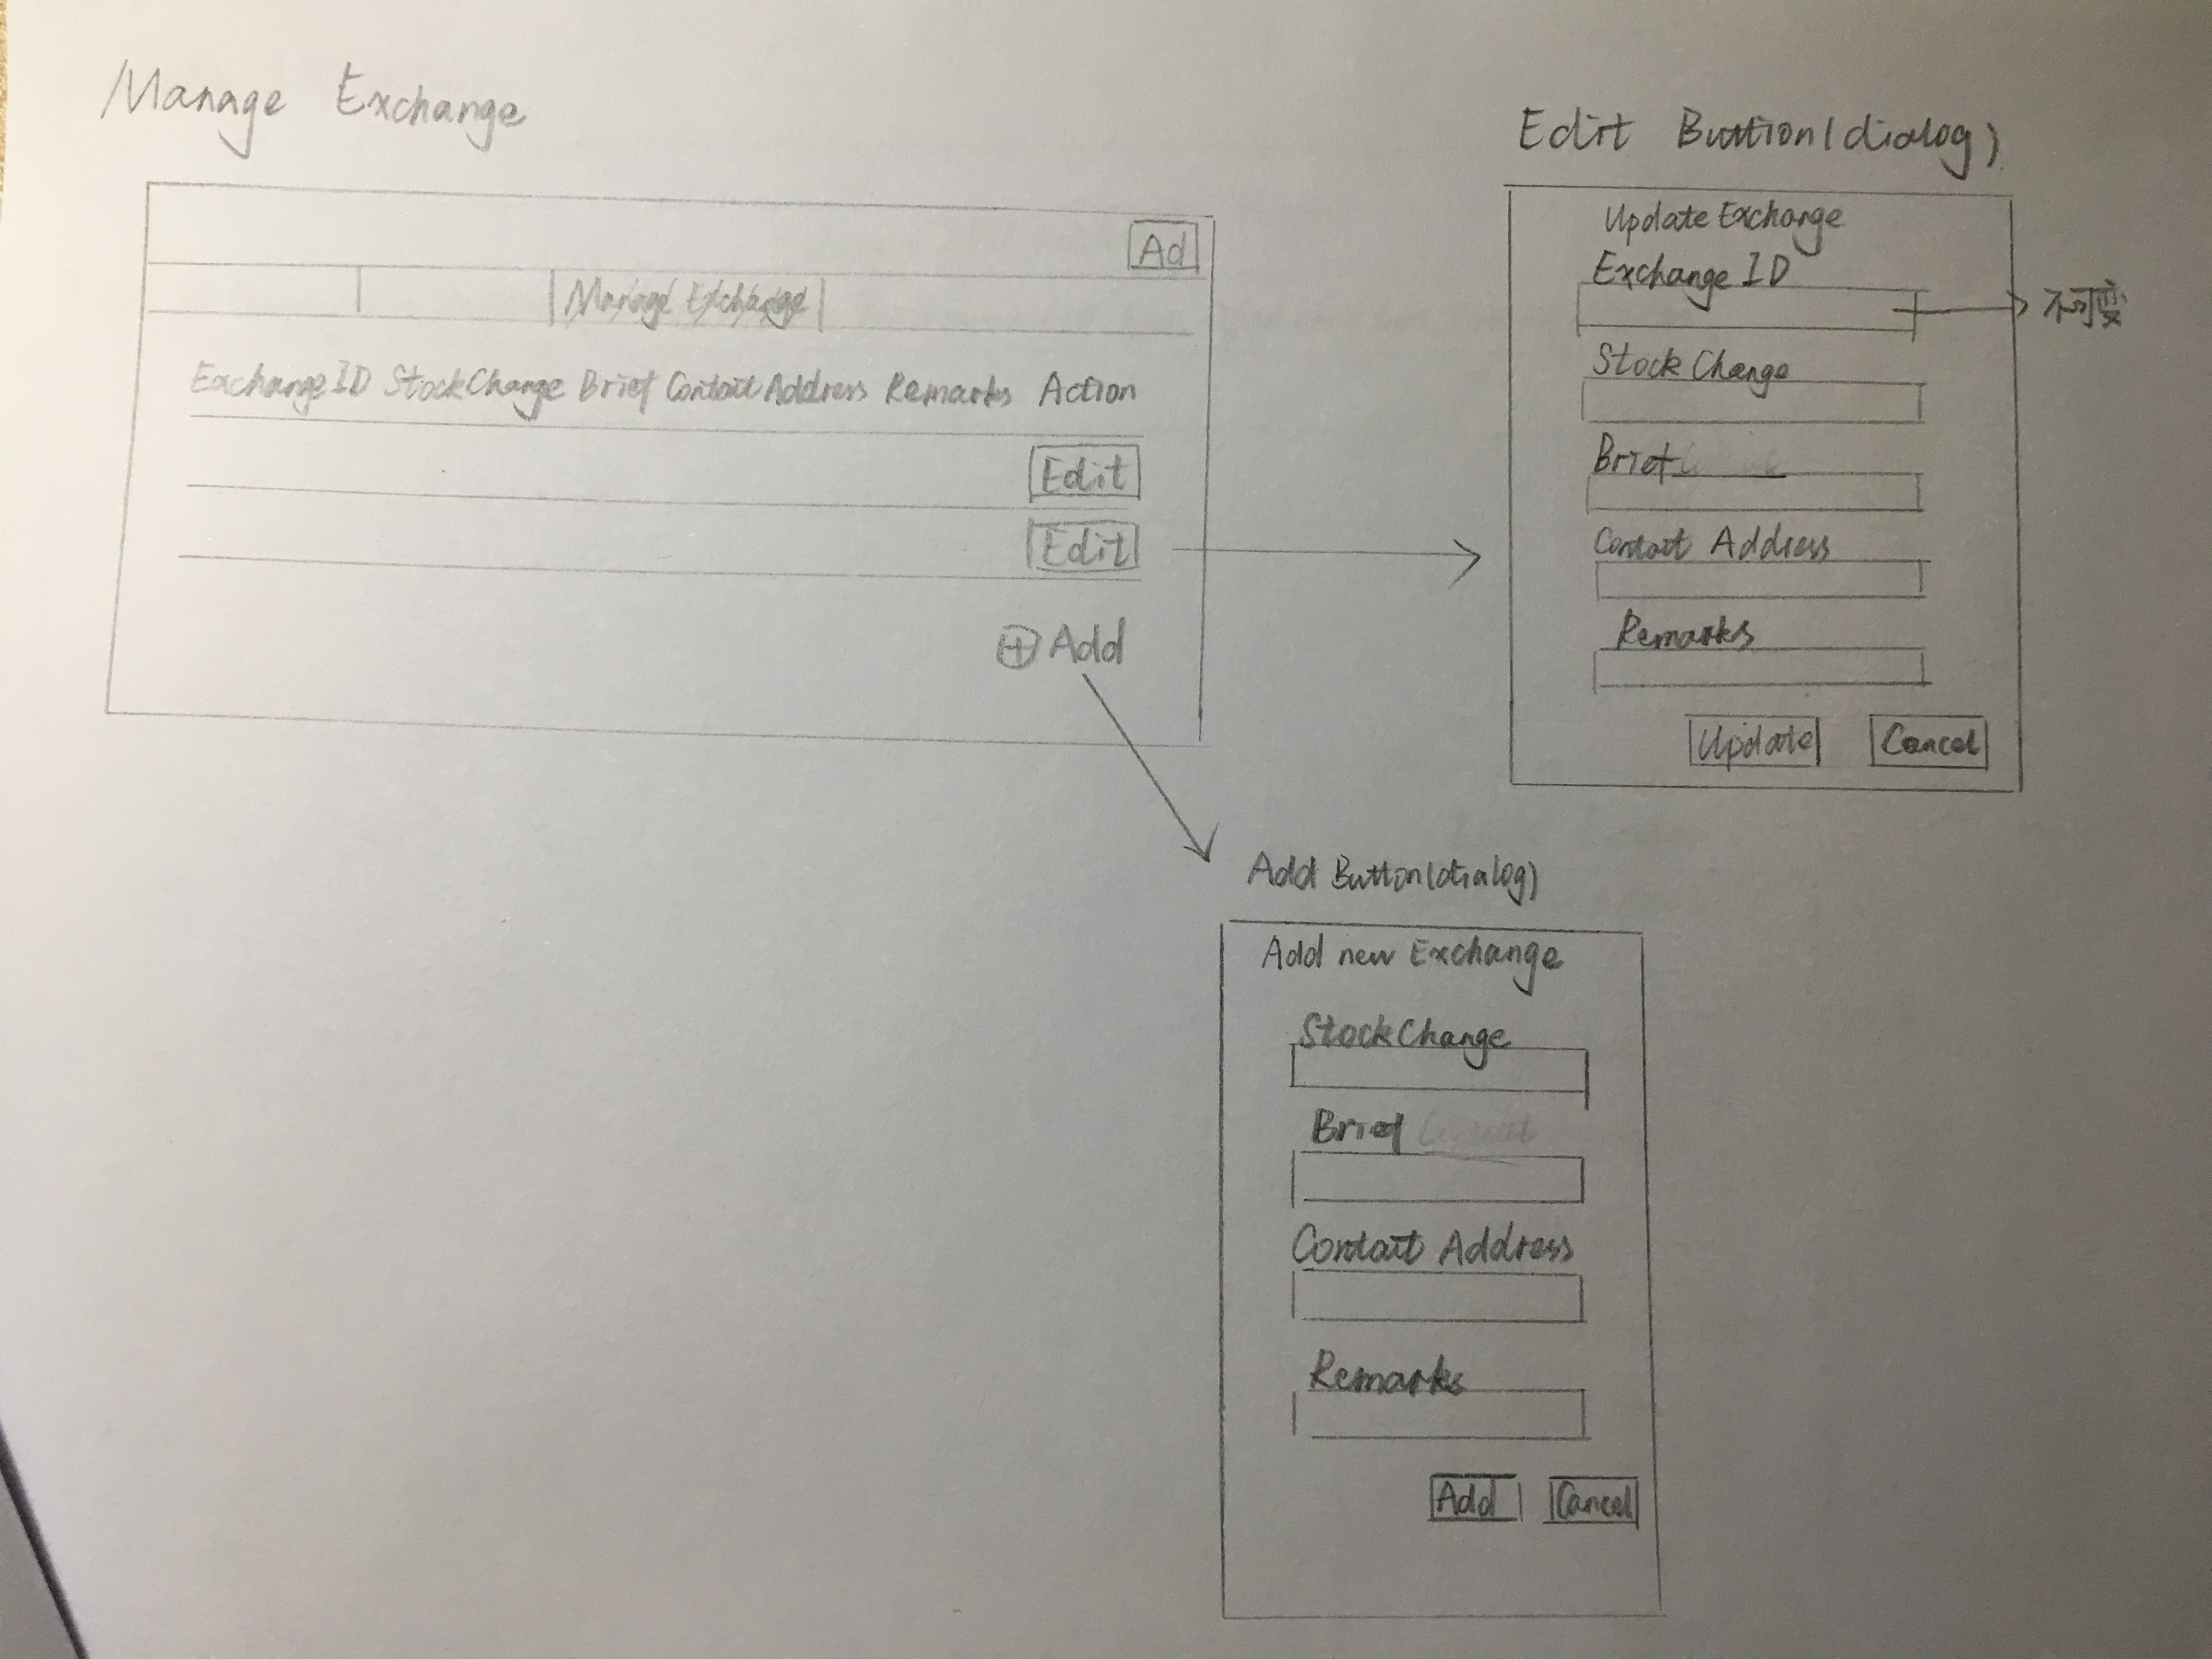 Manage Exchange
Ad
Manage Exchange
ExchangeID StockChange Brief Contact Address Remarks Action
Edit
Edit
Add
Edit Buttion(dialog)
Update Exchange
Exchange ID
不可变
Stock Change
Brief
Contact Address
Remarks
Update Cancel
Add Button(dialog)
Add new Exchange
StockChange
Brief
Contact Address
Remarks
Add Cancel